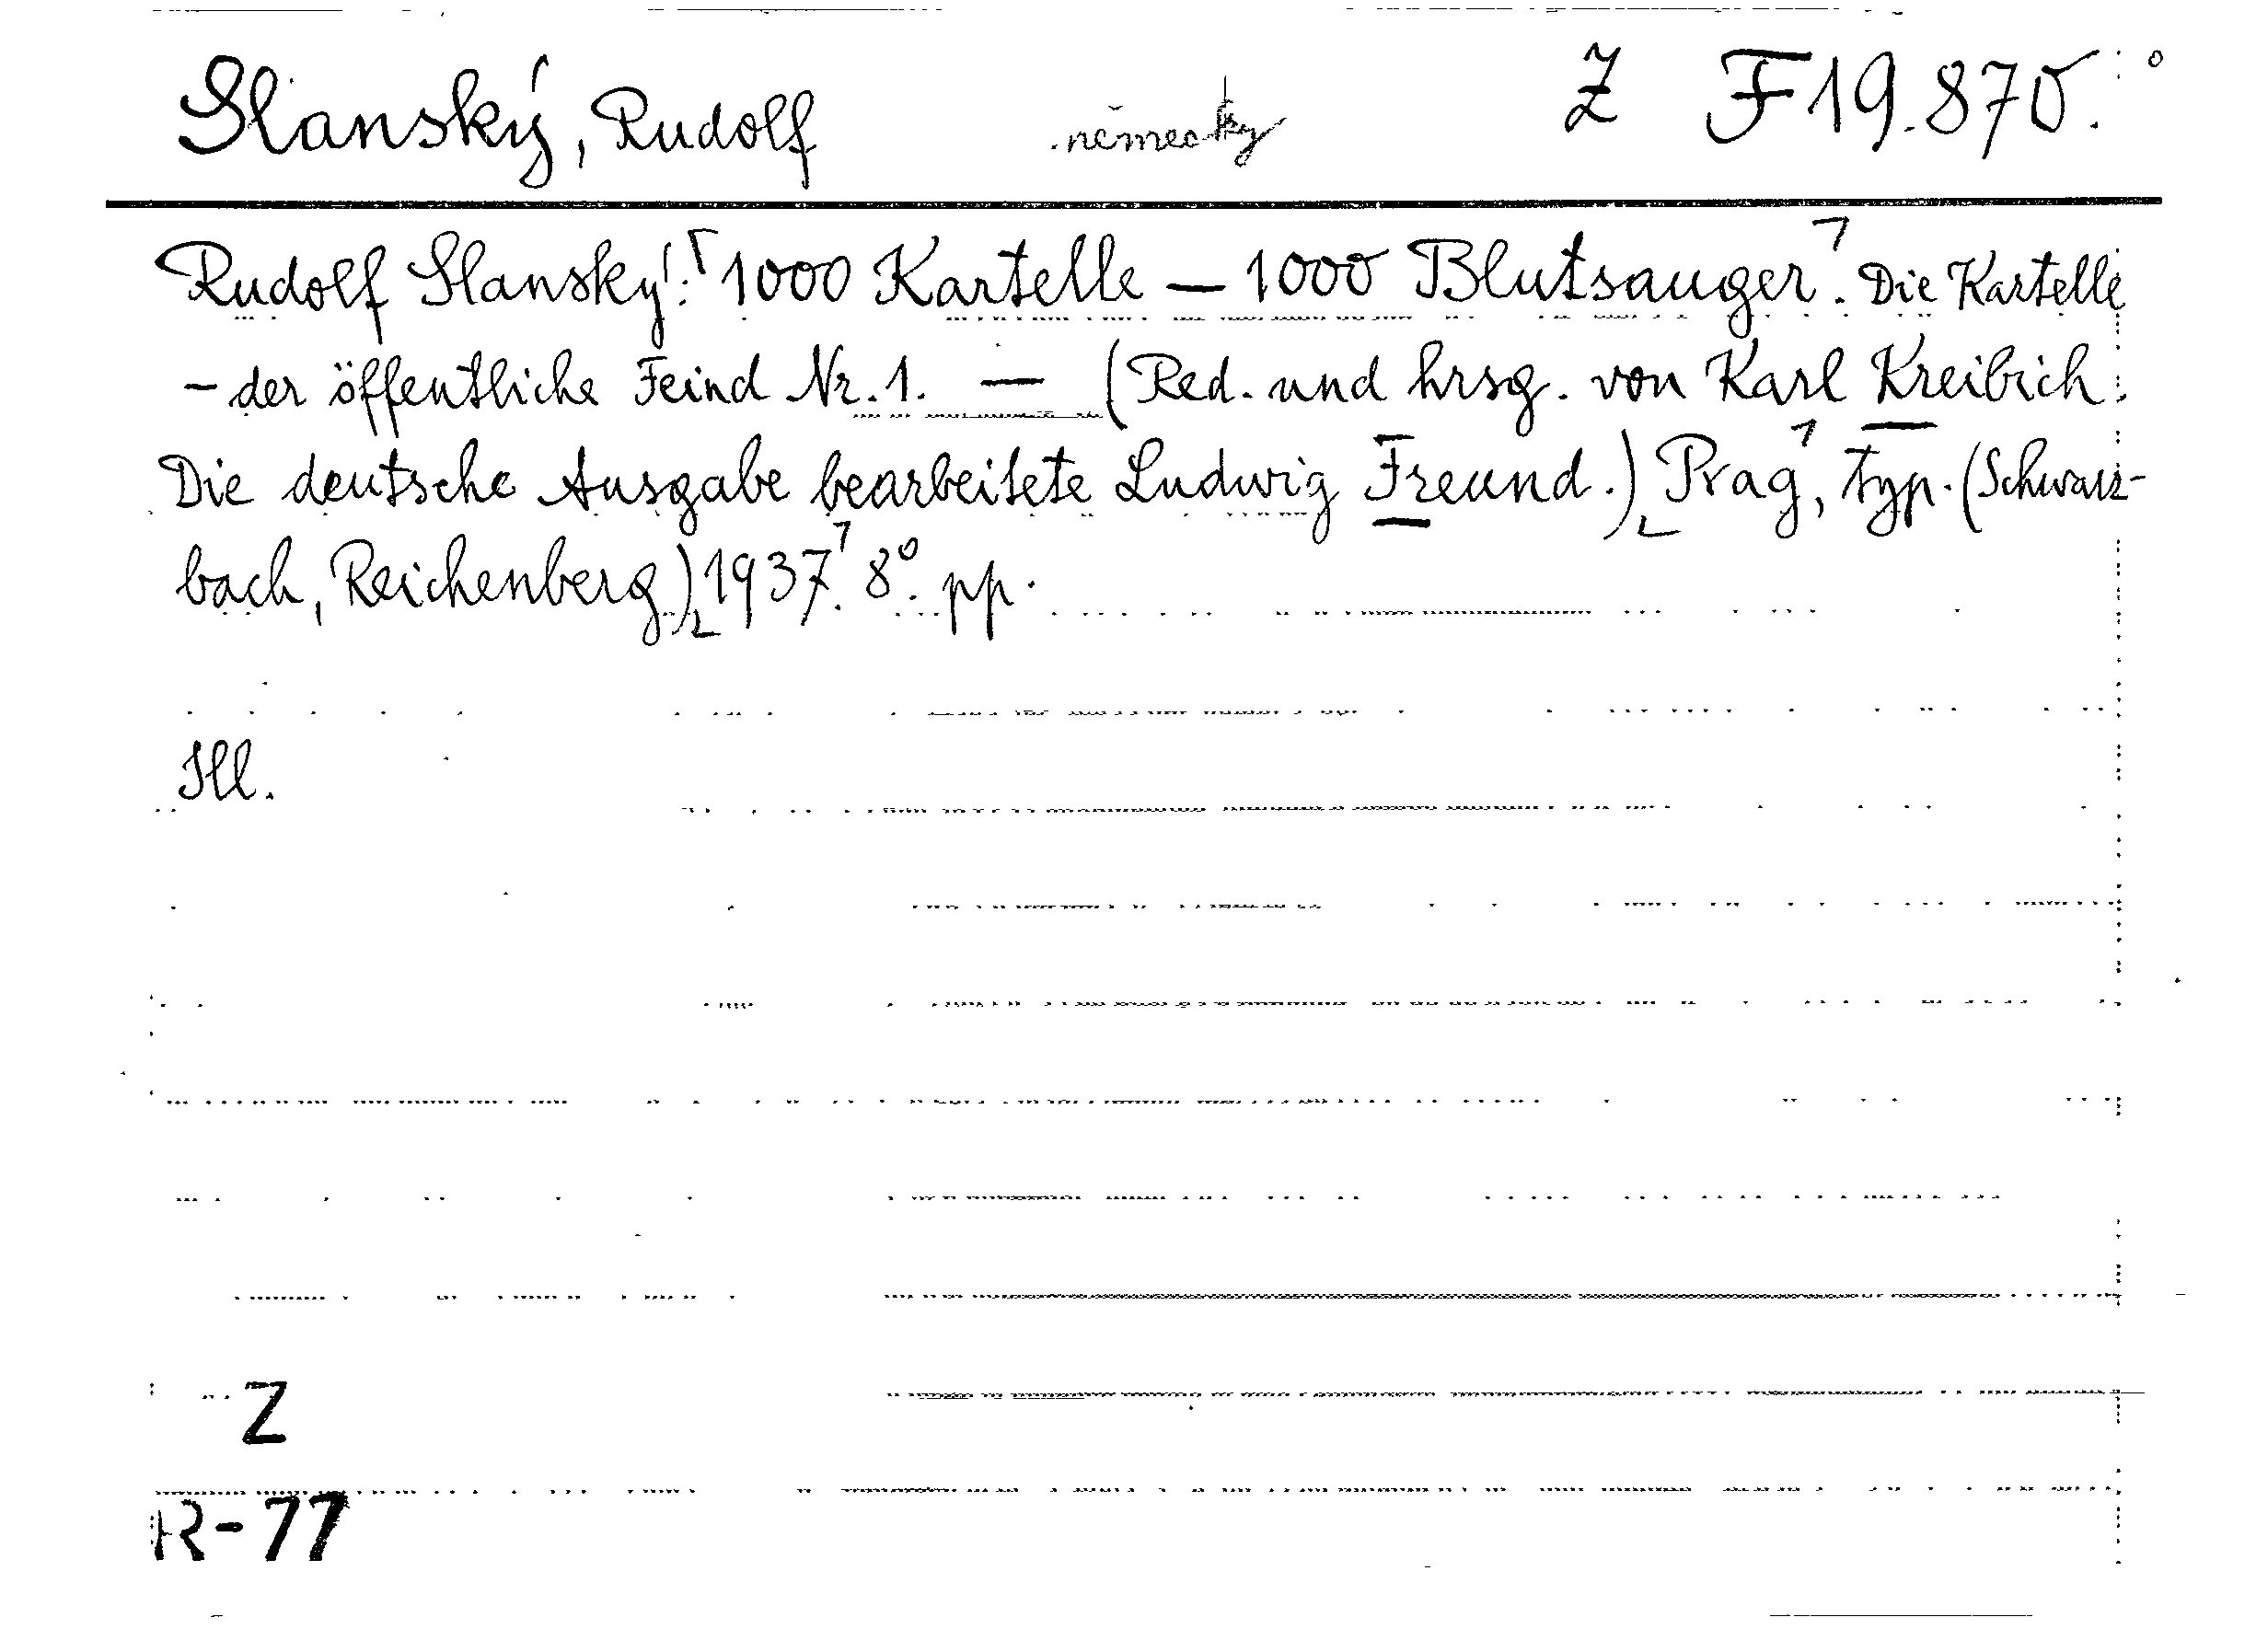 Slanský, Rudolf německy Z F 19.870.
Rudolf Slanský: 1000 Kartelle — 1000 Blutsauger. Die Kartelle
- der öffentliche Feind Nr. 1. — (Red. und hrsg. von Karl Kreibich.
Die deutsche Ausgabe bearbeitete Ludwig Freund.) Prag, typ. (Schwarz-
bach, Reichenberg) 1937. 8°. pp.
Ill.
Z
R-77